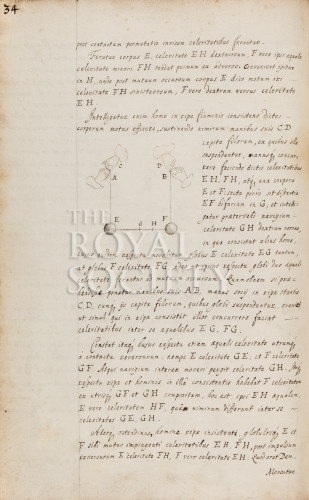 34
post contactum permutatis invicem celeritatibus feruntur.
Feratur corpus E celeritate EH dextrorsum, F vero ipsi aequale
celeritate minori FH tendat primum ex adverso. Conveniunt igitur
in H, unde post mutuum occursum corpus E dico motum iri
celeritate FH sinistrorsum, F vero dextram versus celeritate
EH.
Intelligatur enim homo in ripa fluminis consistens dictos
corporum motus efficere, sustinendo nimirum manibus suis C D
capita filorum, ex quibus illa
suspenduntur, manusque concur-
rere faciendo dictis celeritatibus
EH, FH, atque una corpora
E et F. secta porro sit distantia
EF bifariam in G, et intelli-
gatur praetervehi navigium
celeritate GH dextram versus,
in quo consistat alius homo.
C D
A B
E d H F
THE
ROYAL
SOCIETY
ut globus F celeritate FG
celeritate
manibus suis AB, manus socij in ripa stantis
CD, cumque ijs capita filorum, quibus globi suspenduntur, eveniet
ut simul qui in ripa consistit illos concurrere faciat
celeritatibus inter se aequalibus EG, FG.
Constat itaque huius respectu etiam aequali celeritate utrumque
a contactu reversurum. nempe E celeritate GE, et F celeritate
GF. Atqui navigium interea moveri pergit celeritate GH.
respectu ripae et hominis in illa consistentis habebit F celeritatem
ex utraque GF et GH compositam, hoc est, ipsi EH aequalem,
E vero celeritatem HF, qua nimirum differunt inter se
celeritates GE, GH.
Adeoque ostendimus, homine ripae insistente, globisque E et
F sibi mutuo impingenti celeritatibus EH, FH, post impulsum
reversurum E celeritate FH, F vero celeritate EH. Quod erat Dem.